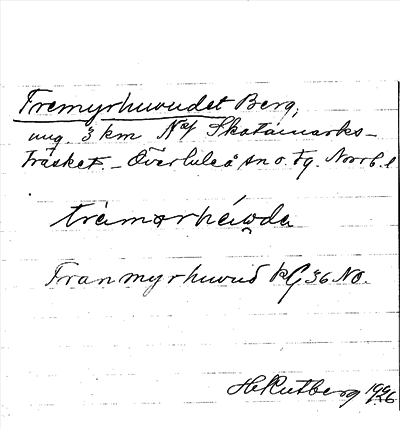 Tremyrhuvudet Berg,
ung. 3 km N af Skatamarks-
träsket. - Överluleå sn o. Tg. Norrb. l
Tranmyrhuvud kG 36 NO.
H Rutberg 1926